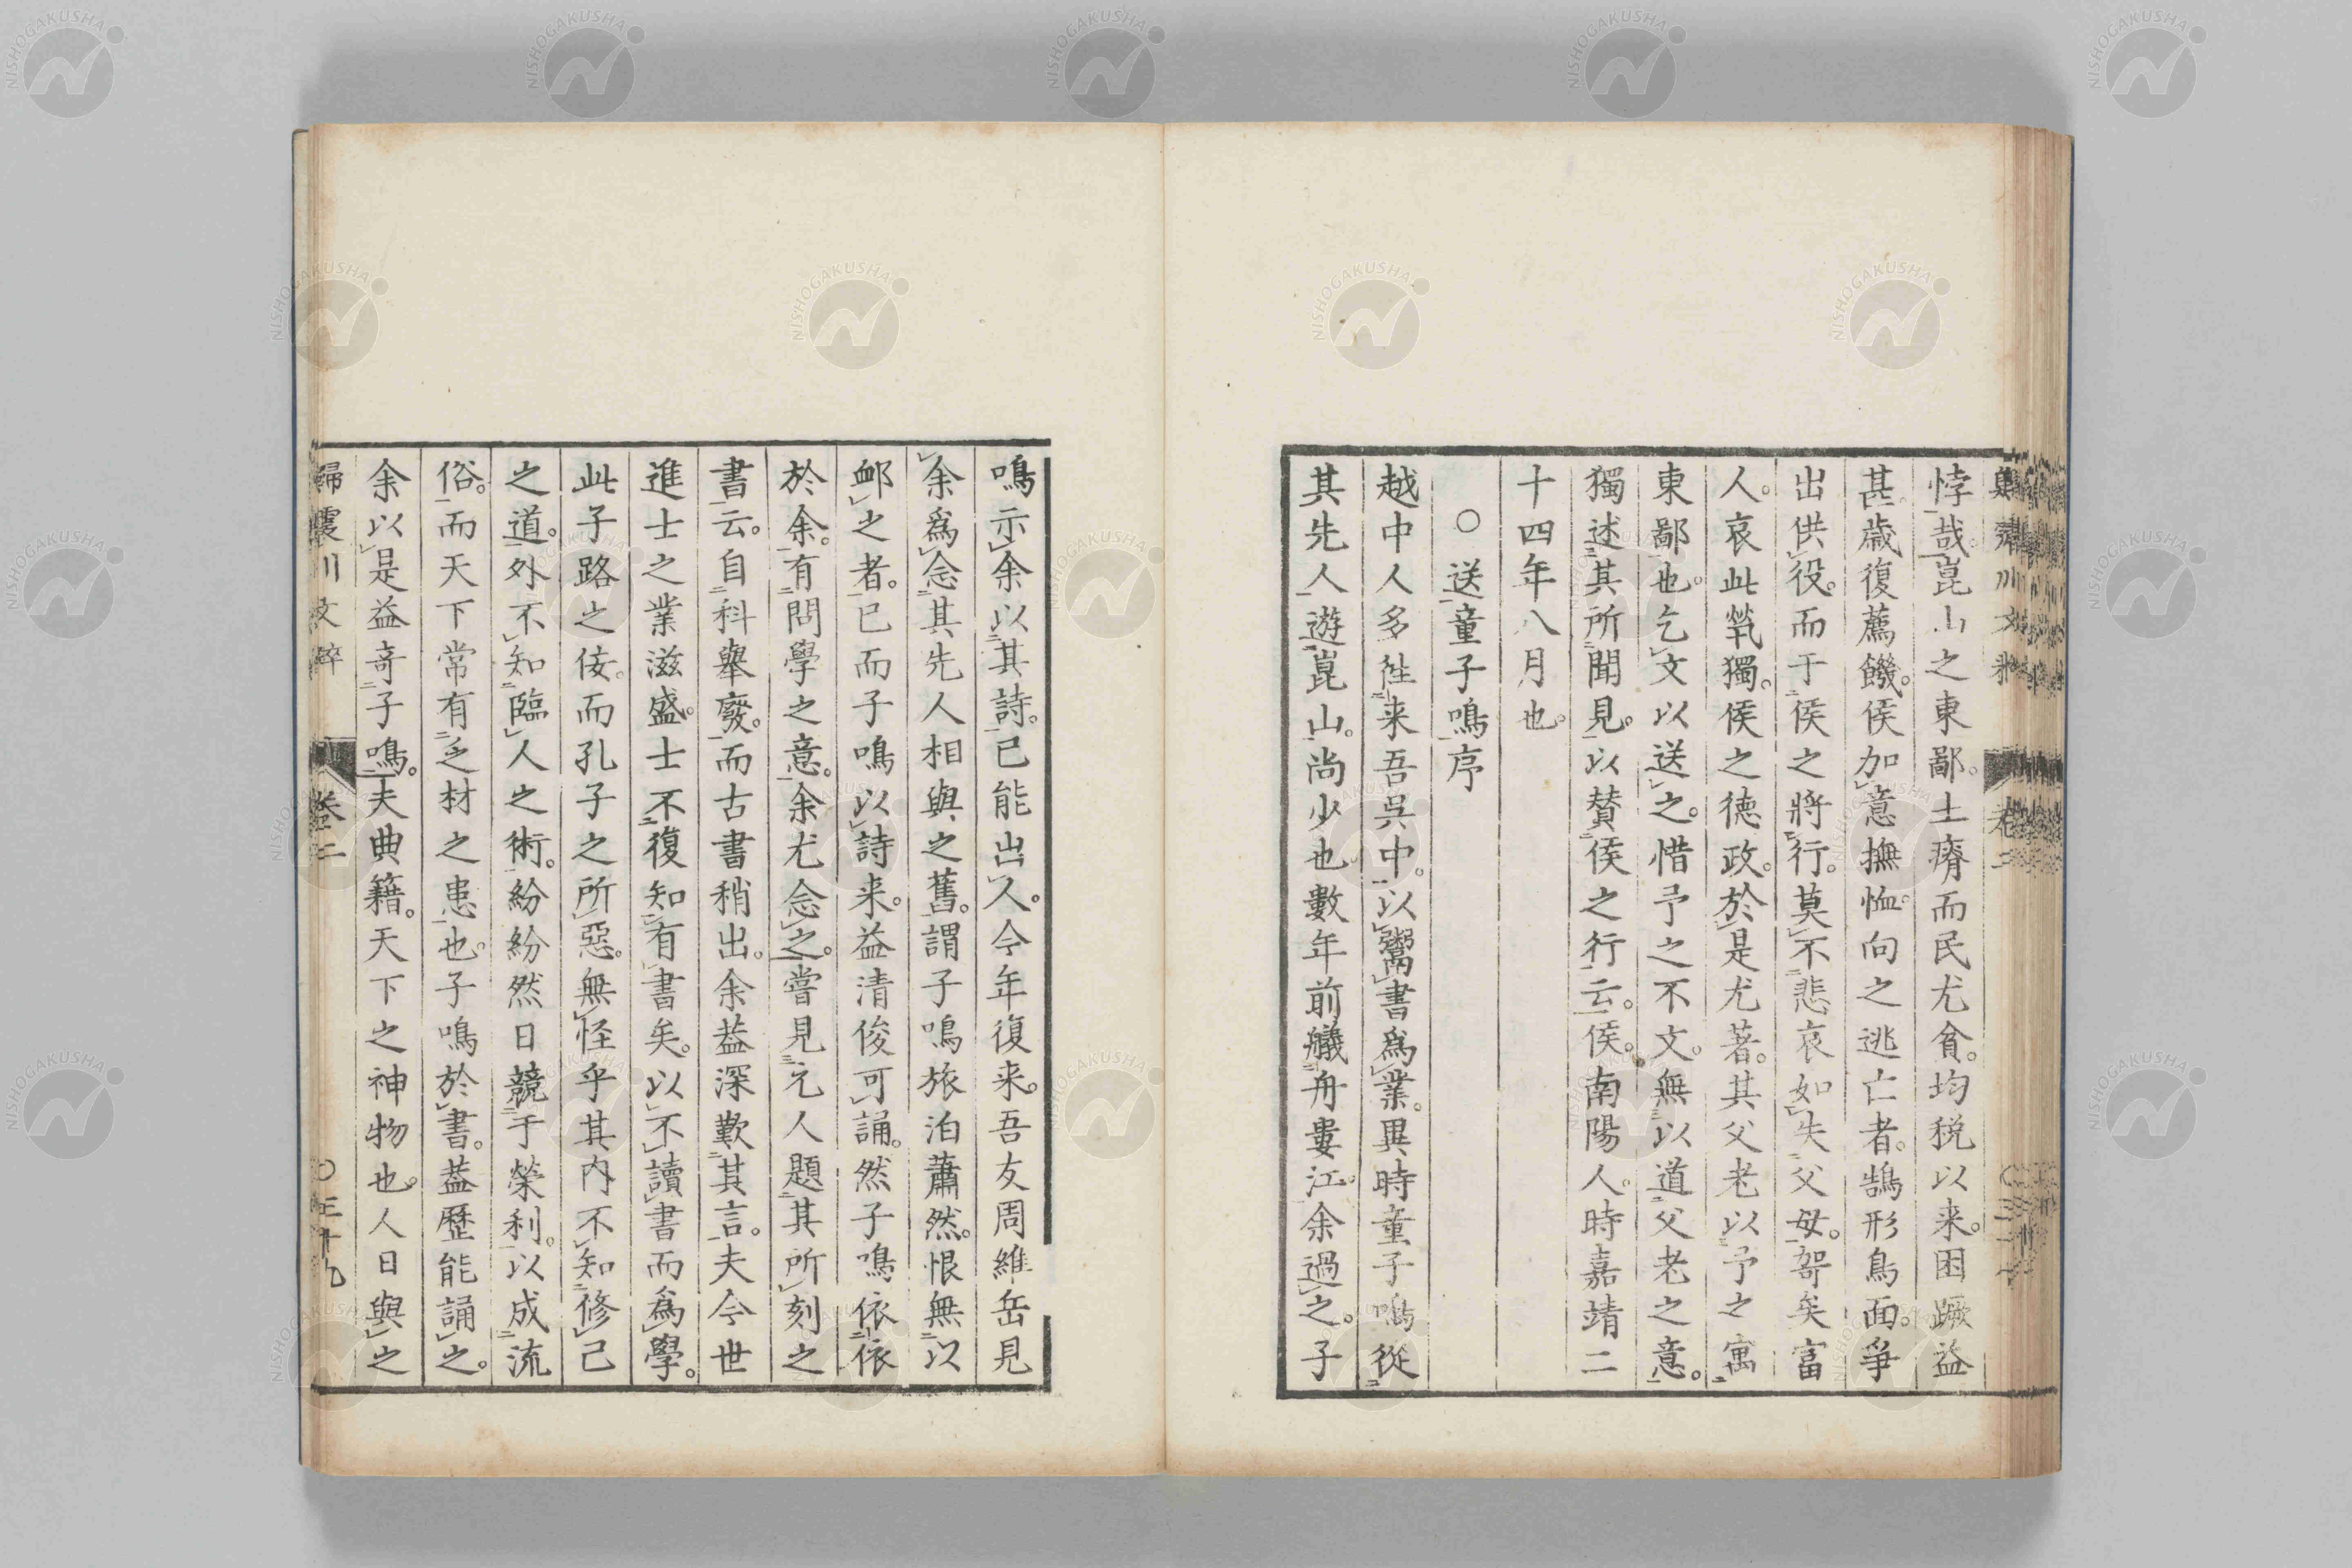 悖哉崑山之東鄙土瘠而民尤貧均税以来困蹶益
甚歳復薦饑侯加意撫恤向之逃亡者鵠形鳥面爭
出供役而于侯之將行莫不悲哀如失父母嗟矣富
人哀此煢獨侯之徳政於是尤著其父老以予之寓
東鄙也乞文以送之惜予之不文無以道父老之意
獨述其所聞見以賛侯之行云侯南陽人時嘉靖二
十四年八月也
○送童子鳴序
越中人多徃来吾呉中以鬻書為業異時童子鳴從
其先人遊崑山尚少也數年前艤舟婁江余過之子
鳴示余以其詩已能出人今年復来吾友周維岳見
余爲念其先人相與之舊謂子鳴旅泊蕭然恨無以
䘏之者已而子鳴以詩来益清俊可誦然子鳴依依
於余有問學之意余尤念之嘗見元人題其所刻之
書云自科舉廢而古書稍出余葢深歎其言夫今世
進士之業滋盛士不復知有書矣以不讀書而爲學
此子路之佞而孔子之所惡無怪乎其内不知修己
之道外不知臨人之術紛紛然日競于榮利以成流
俗而天下常有乏材之患也子鳴於書葢歴能誦之
余以是益竒子鳴夫典籍天下之神物也人日與之
歸震川文粹 卷二 ○三十九
NISHOGAKUSHA